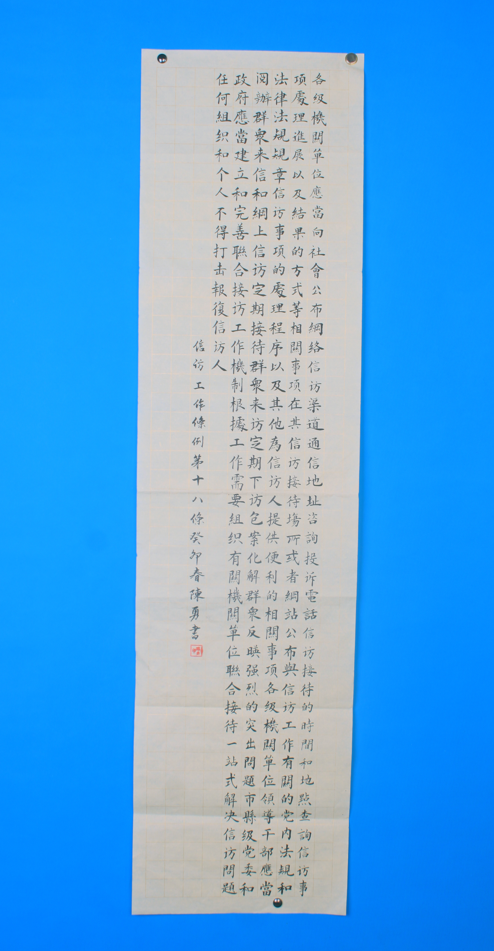 各级機關單位應當向社會公布網络信访渠道通信地址咨詢投诉電話信访接待的時間和地點查詢信访事
項處理進展以及结果的方式等相關事項在其信访接待場所或者網站公布與信访工作有關的党内法規和
法律法規規章信访事項的處理程序以及其他為信访人提供便利的相關事項各级機關單位領導干部應當
阅辦群衆来信和網上信访定期接待群衆来访定期下访包案化解群衆反映强烈的突出問題市縣级党委和
政府應當建立和完善聯合接访工作機制根據工作需要组织有關機關單位聯合接待一站式解决信访問題
任何組织和个人不得打击報復信访人
信访工作條例第十八條癸卯春陳勇書